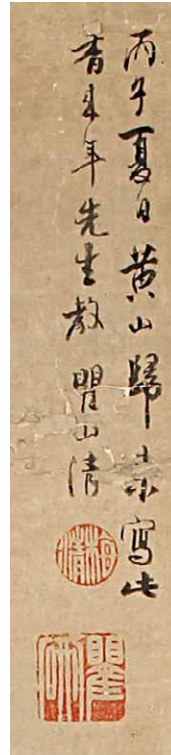 丙子夏日黄山歸來寫此
香來年先生教 瞿山清
梅清